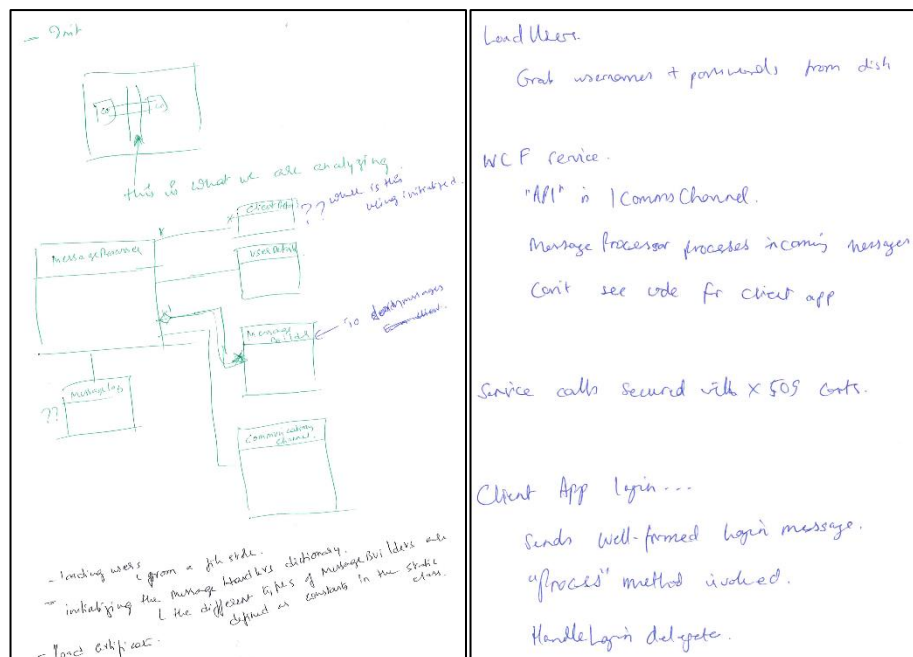 - Init
this is what we are analyzing
Client App
?? where is this
being initialized.
User Details
Message
To
Message Log
??
Communication
Channel
- loading users from a file store.
- initializing the message Handlers dictionary.
the different types of MessageBuilders are
defined as constants in the static
class.
- load certificate.
Load Users.
Grab usernames + passwords from disk
WCF service.
"API" is ICommsChannel.
Message Processor processes incoming messages
Can't see code for client app
Service calls secured with X509 certs.
Client App login...
Sends well-formed login message.
"Process" method invoked.
HandleLogin delegate.